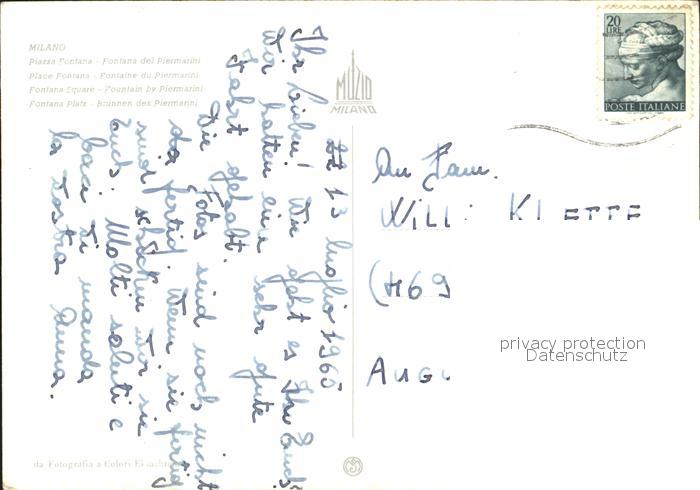 MILANO
Piazza Fontana - Fontana del Piermarini
Place Fontana - Fontaine du Piermarini
Fontana Square - Fountain by Piermarini
Fontana Platz - Brunnen des Piermarini
MUZIO
MILANO
20
LIRE
POSTE ITALIANE
13 luglio 1965
Ihr Lieben! Wie geht es Euch?
Wir hatten eine sehr gute
Fahrt gehabt.
Die Fotos sind noch nicht
da fertig. Wenn sie fertig
sind schicken wir sie
Euch. Molti saluti e
baci vi manda
la vostra Anna.
An Fam.
WILLI
(469
AUG
privacy protection
Datenschutz
da Fotografia a Colori